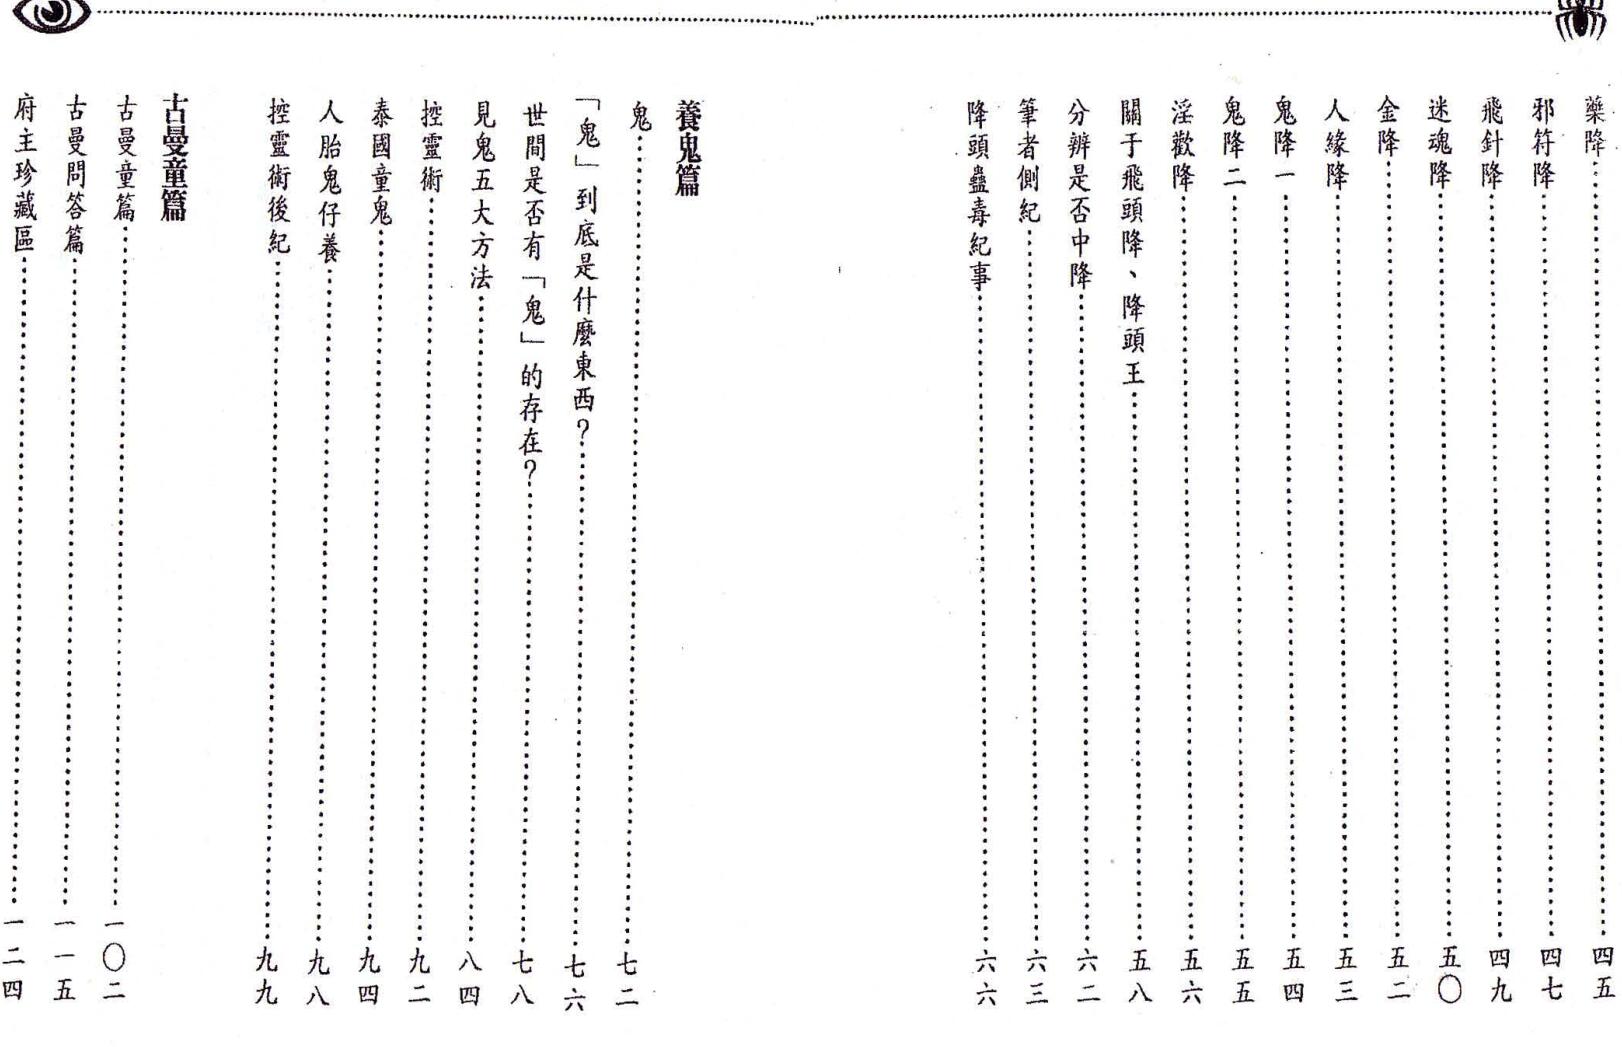 藥降……四五
邪符降……四七
飛針降……四九
迷魂降……五〇
金降……五二
人緣降……五三
鬼降一……五四
鬼降二……五五
淫歡降……五六
關于飛頭降、降頭王……五八
分辨是否中降……六二
筆者側紀……六三
降頭蠱毒紀事……六六
養鬼篇
鬼……七二
「鬼」到底是什麼東西？……七六
世間是否有「鬼」的存在？……七八
見鬼五大方法……八四
控靈術……九二
泰國童鬼……九四
人胎鬼仔養……九八
控靈術後紀……九九
古曼童篇
古曼童篇……一〇二
古曼問答篇……一一五
府主珍藏區……一二四